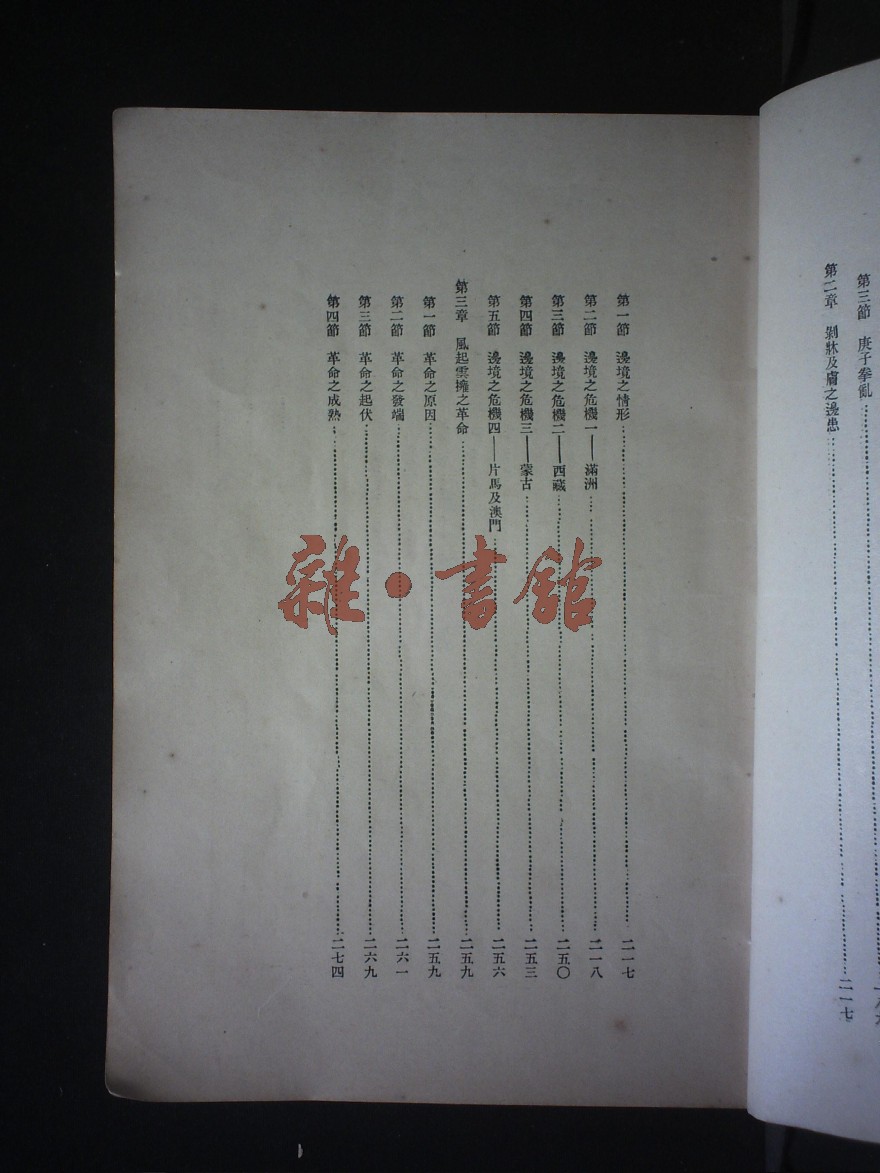 第三節　庚子拳亂
第二章　剝牀及膚之邊患……二一七
第一節　邊境之情形……二一七
第二節　邊境之危機一——滿洲……二一八
第三節　邊境之危機二——西藏……二五〇
第四節　邊境之危機三——蒙古……二五三
第五節　邊境之危機四——片馬及澳門……二五六
第三章　風起雲擁之革命……二五九
第一節　革命之原因……二五九
第二節　革命之發端……二六一
第三節　革命之起伏……二六九
第四節　革命之成熟……二七四
雜·書館